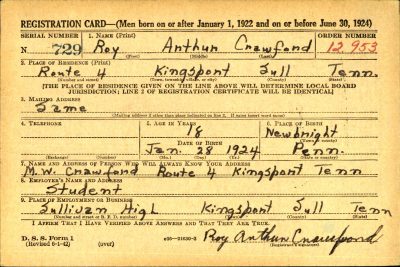 REGISTRATION CARD—(Men born on or after January 1, 1922 and on or before June 30, 1924)
SERIAL NUMBER 1. NAME (Print) ORDER NUMBER
N 729 Roy Arthur Crawford 12,953
(First) (Middle) (Last)
2. PLACE OF RESIDENCE (Print)
Route 4 Kingsport Sull Tenn.
(Number and street) (Town, township, village, or city) (County) (State)
[THE PLACE OF RESIDENCE GIVEN ON THE LINE ABOVE WILL DETERMINE LOCAL BOARD
JURISDICTION; LINE 2 OF REGISTRATION CERTIFICATE WILL BE IDENTICAL]
3. MAILING ADDRESS
Same
(Mailing address if other than place indicated on line 2. If same insert word same)
4. TELEPHONE 5. AGE IN YEARS 6. PLACE OF BIRTH
18 Newbright
DATE OF BIRTH (Town or county)
Jan. 28 1924 Penn.
(Exchange) (Number) (Mo.) (Day) (Yr.) (State or country)
7. NAME AND ADDRESS OF PERSON WHO WILL ALWAYS KNOW YOUR ADDRESS
M.W. Crawford Route 4 Kingsport Tenn
8. EMPLOYER'S NAME AND ADDRESS
Student
9. PLACE OF EMPLOYMENT OR BUSINESS
Sullivan High Kingsport Sull Tenn
(Number and street or R. F. D. number) (Town) (County) (State)
I AFFIRM THAT I HAVE VERIFIED ABOVE ANSWERS AND THAT THEY ARE TRUE.
D. S. S. Form 1
(Revised 6-1-42) (over) Roy Arthur Crawford